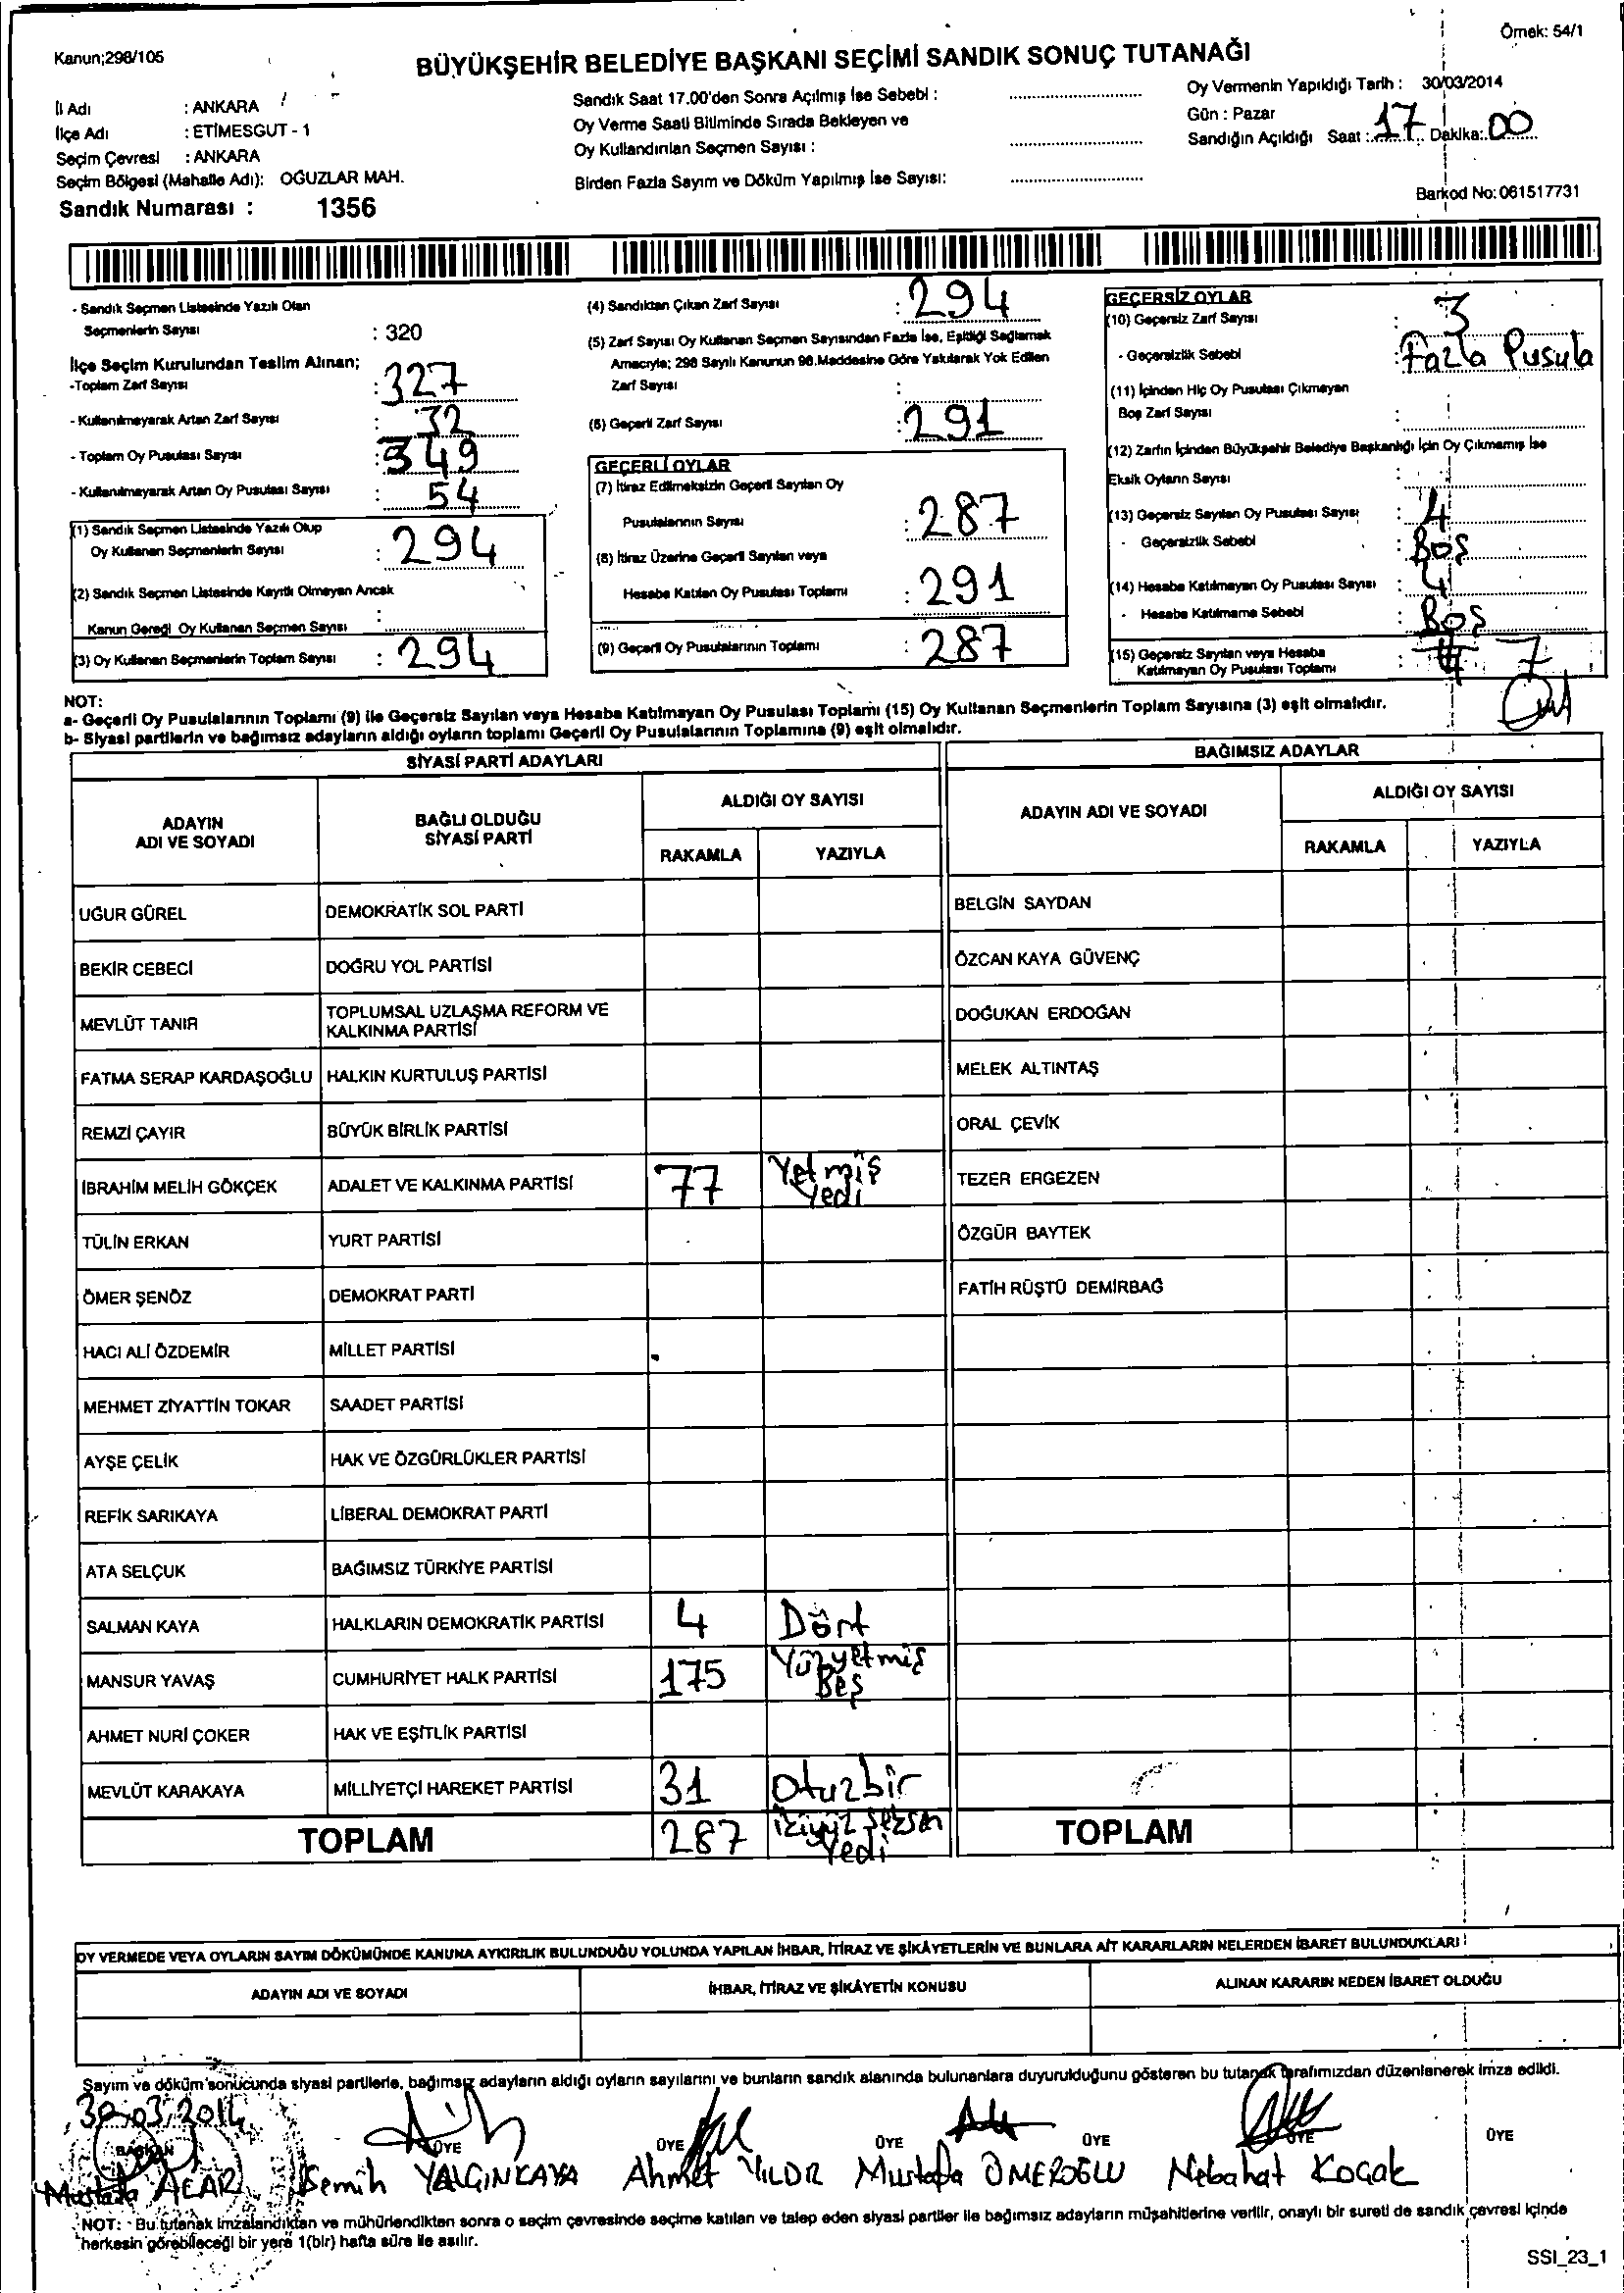 Örnek: 54/1
Kanun;298/105
BÜYÜKŞEHİR BELEDİYE BAŞKANI SEÇİMİ SANDIK SONUÇ TUTANAĞI
İl Adı : ANKARA
İlçe Adı : ETİMESGUT - 1
Seçim Çevresi : ANKARA
Seçim Bölgesi (Mahalle Adı): OĞUZLAR MAH.
Sandık Numarası : 1356
Sandık Saat 17.00'den Sonra Açılmış İse Sebebi :
Oy Verme Saati Bitiminde Sırada Bekleyen ve
Oy Kullandırılan Seçmen Sayısı :
Birden Fazla Sayım ve Döküm Yapılmış İse Sayısı:
Oy Vermenin Yapıldığı Tarih : 30/03/2014
Gün : Pazar
Sandığın Açıldığı Saat : 17 Dakika: 00
Barkod No: 061517731
- Sandık Seçmen Listesinde Yazılı Olan
Seçmenlerin Sayısı : 320
İlçe Seçim Kurulundan Teslim Alınan;
-Toplam Zarf Sayısı : 327
- Kullanılmayarak Artan Zarf Sayısı : 32
- Toplam Oy Pusulası Sayısı : 349
- Kullanılmayarak Artan Oy Pusulası Sayısı : 54
(1) Sandık Seçmen Listesinde Yazılı Olup
Oy Kullanan Seçmenlerin Sayısı : 294
(2) Sandık Seçmen Listesinde Kayıtlı Olmayan Ancak
Kanun Gereği Oy Kullanan Seçmen Sayısı :
(3) Oy Kullanan Seçmenlerin Toplam Sayısı : 294
(4) Sandıktan Çıkan Zarf Sayısı : 294
(5) Zarf Sayısı Oy Kullanan Seçmen Sayısından Fazla İse, Eşitliği Sağlamak
Amacıyla; 298 Sayılı Kanunun 98.Maddesine Göre Yakılarak Yok Edilen
Zarf Sayısı :
(6) Geçerli Zarf Sayısı : 291
GEÇERLİ OYLAR
(7) İtiraz Edilmeksizin Geçerli Sayılan Oy
Pusulalarının Sayısı : 287
(8) İtiraz Üzerine Geçerli Sayılan veya
Hesaba Katılan Oy Pusulası Toplamı : 291
(9) Geçerli Oy Pusulalarının Toplamı : 287
GEÇERSİZ OYLAR
(10) Geçersiz Zarf Sayısı : 3
- Geçersizlik Sebebi : Fazla Pusula
(11) İçinden Hiç Oy Pusulası Çıkmayan
Boş Zarf Sayısı :
(12) Zarfın İçinden Büyükşehir Belediye Başkanlığı İçin Oy Çıkmamış İse
Eksik Oyların Sayısı :
(13) Geçersiz Sayılan Oy Pusulası Sayısı : 4
- Geçersizlik Sebebi : Boş
(14) Hesaba Katılmayan Oy Pusulası Sayısı : 4
- Hesaba Katılmama Sebebi : Boş
(15) Geçersiz Sayılan veya Hesaba
Katılmayan Oy Pusulası Toplamı : 7
NOT:
a- Geçerli Oy Pusulalarının Toplamı (9) ile Geçersiz Sayılan veya Hesaba Katılmayan Oy Pusulası Toplamı (15) Oy Kullanan Seçmenlerin Toplam Sayısına (3) eşit olmalıdır.
b- Siyasi partilerin ve bağımsız adayların aldığı oyların toplamı Geçerli Oy Pusulalarının Toplamına (9) eşit olmalıdır.
SİYASİ PARTİ ADAYLARI
ADAYIN ADI VE SOYADI
BAĞLI OLDUĞU SİYASİ PARTİ
ALDIĞI OY SAYISI
RAKAMLA YAZIYLA
UĞUR GÜREL DEMOKRATİK SOL PARTİ
BEKİR CEBECİ DOĞRU YOL PARTİSİ
MEVLÜT TANIR TOPLUMSAL UZLAŞMA REFORM VE KALKINMA PARTİSİ
FATMA SERAP KARDAŞOĞLU HALKIN KURTULUŞ PARTİSİ
REMZİ ÇAYIR BÜYÜK BİRLİK PARTİSİ
İBRAHİM MELİH GÖKÇEK ADALET VE KALKINMA PARTİSİ 77 Yetmiş Yedi
TÜLİN ERKAN YURT PARTİSİ
ÖMER ŞENÖZ DEMOKRAT PARTİ
HACI ALİ ÖZDEMİR MİLLET PARTİSİ
MEHMET ZİYATTİN TOKAR SAADET PARTİSİ
AYŞE ÇELİK HAK VE ÖZGÜRLÜKLER PARTİSİ
REFİK SARIKAYA LİBERAL DEMOKRAT PARTİ
ATA SELÇUK BAĞIMSIZ TÜRKİYE PARTİSİ
SALMAN KAYA HALKLARIN DEMOKRATİK PARTİSİ 4 Dört
MANSUR YAVAŞ CUMHURİYET HALK PARTİSİ 175 Yüzyetmiş Beş
AHMET NURİ ÇOKER HAK VE EŞİTLİK PARTİSİ
MEVLÜT KARAKAYA MİLLİYETÇİ HAREKET PARTİSİ 31 Otuzbir
TOPLAM 287 ikiyüz seksen Yedi
BAĞIMSIZ ADAYLAR
ADAYIN ADI VE SOYADI
ALDIĞI OY SAYISI
RAKAMLA YAZIYLA
BELGİN SAYDAN
ÖZCAN KAYA GÜVENÇ
DOĞUKAN ERDOĞAN
MELEK ALTINTAŞ
ORAL ÇEVİK
TEZER ERGEZEN
ÖZGÜR BAYTEK
FATİH RÜŞTÜ DEMİRBAĞ
TOPLAM
OY VERMEDE VEYA OYLARIN SAYIM DÖKÜMÜNDE KANUNA AYKIRILIK BULUNDUĞU YOLUNDA YAPILAN İHBAR, İTİRAZ VE ŞİKÂYETLERİN VE BUNLARA AİT KARARLARIN NELERDEN İBARET BULUNDUKLARI
ADAYIN ADI VE SOYADI İHBAR, İTİRAZ VE ŞİKÂYETİN KONUSU ALINAN KARARIN NEDEN İBARET OLDUĞU
Sayım ve döküm sonucunda siyasi partilerle, bağımsız adayların aldığı oyların sayılarını ve bunların sandık alanında bulunanlara duyurulduğunu gösteren bu tutanak tarafımızdan düzenlenerek imza edildi.
30.03.2014
BAŞKAN ÜYE ÜYE ÜYE ÜYE ÜYE ÜYE
Mustafa ACAR Semih YALGINKAYA Ahmet YILDIR Mustafa ÖMEROĞLU Nebahat Koçak
NOT: - Bu tutanak imzalandıktan ve mühürlendikten sonra o seçim çevresinde seçime katılan ve talep eden siyasi partiler ile bağımsız adayların müşahitlerine verilir, onaylı bir sureti de sandık çevresi içinde
herkesin görebileceği bir yere 1(bir) hafta süre ile asılır.
SSI_23_1